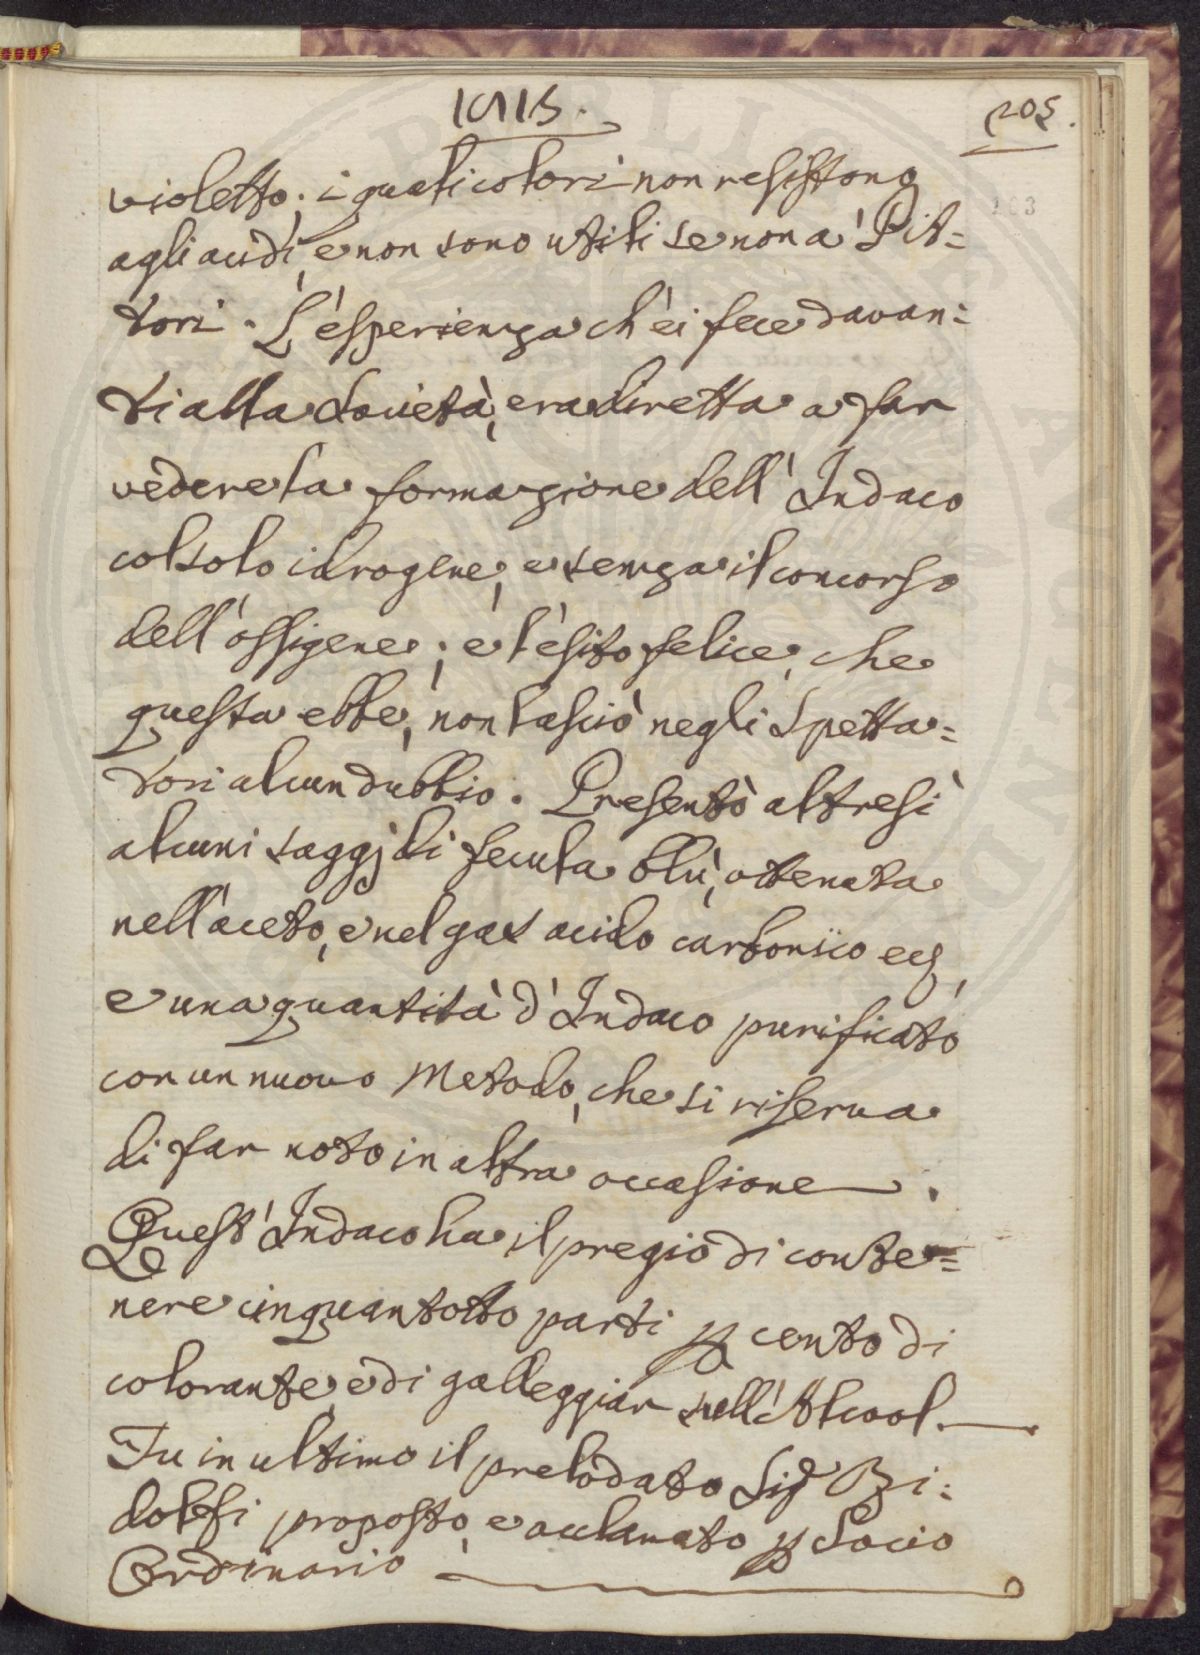 1813.
205.
violetto; i quali colori non resistono
103
agli acidi, e non sono utili se non a' Pit=
tori. L'esperienza ch'ei fece davan=
ti alla Società, era diretta a far
vedere la formazione dell'Indaco
col solo idrogene, e senza il concorso
dell'ossigene; e l'esito felice, che
questa ebbe, non lasciò negli Spetta=
tori alcun dubbio. Presentò altresì
alcuni saggj di fecula blù, ottenuta
nell'aceto, e nel gas acido carbonico ec,
e una quantità d'Indaco purificato
con un nuovo Metodo, che si riserva
di far noto in altra occasione.
Quest'Indaco ha il pregio di conte=
nere cinquantotto parti p cento di
colorante, e di galleggiar sull'Alcool.
Fu in ultimo il prelodato Sig Ri=
dolfi proposto, e acclamato p Socio
Ordinario